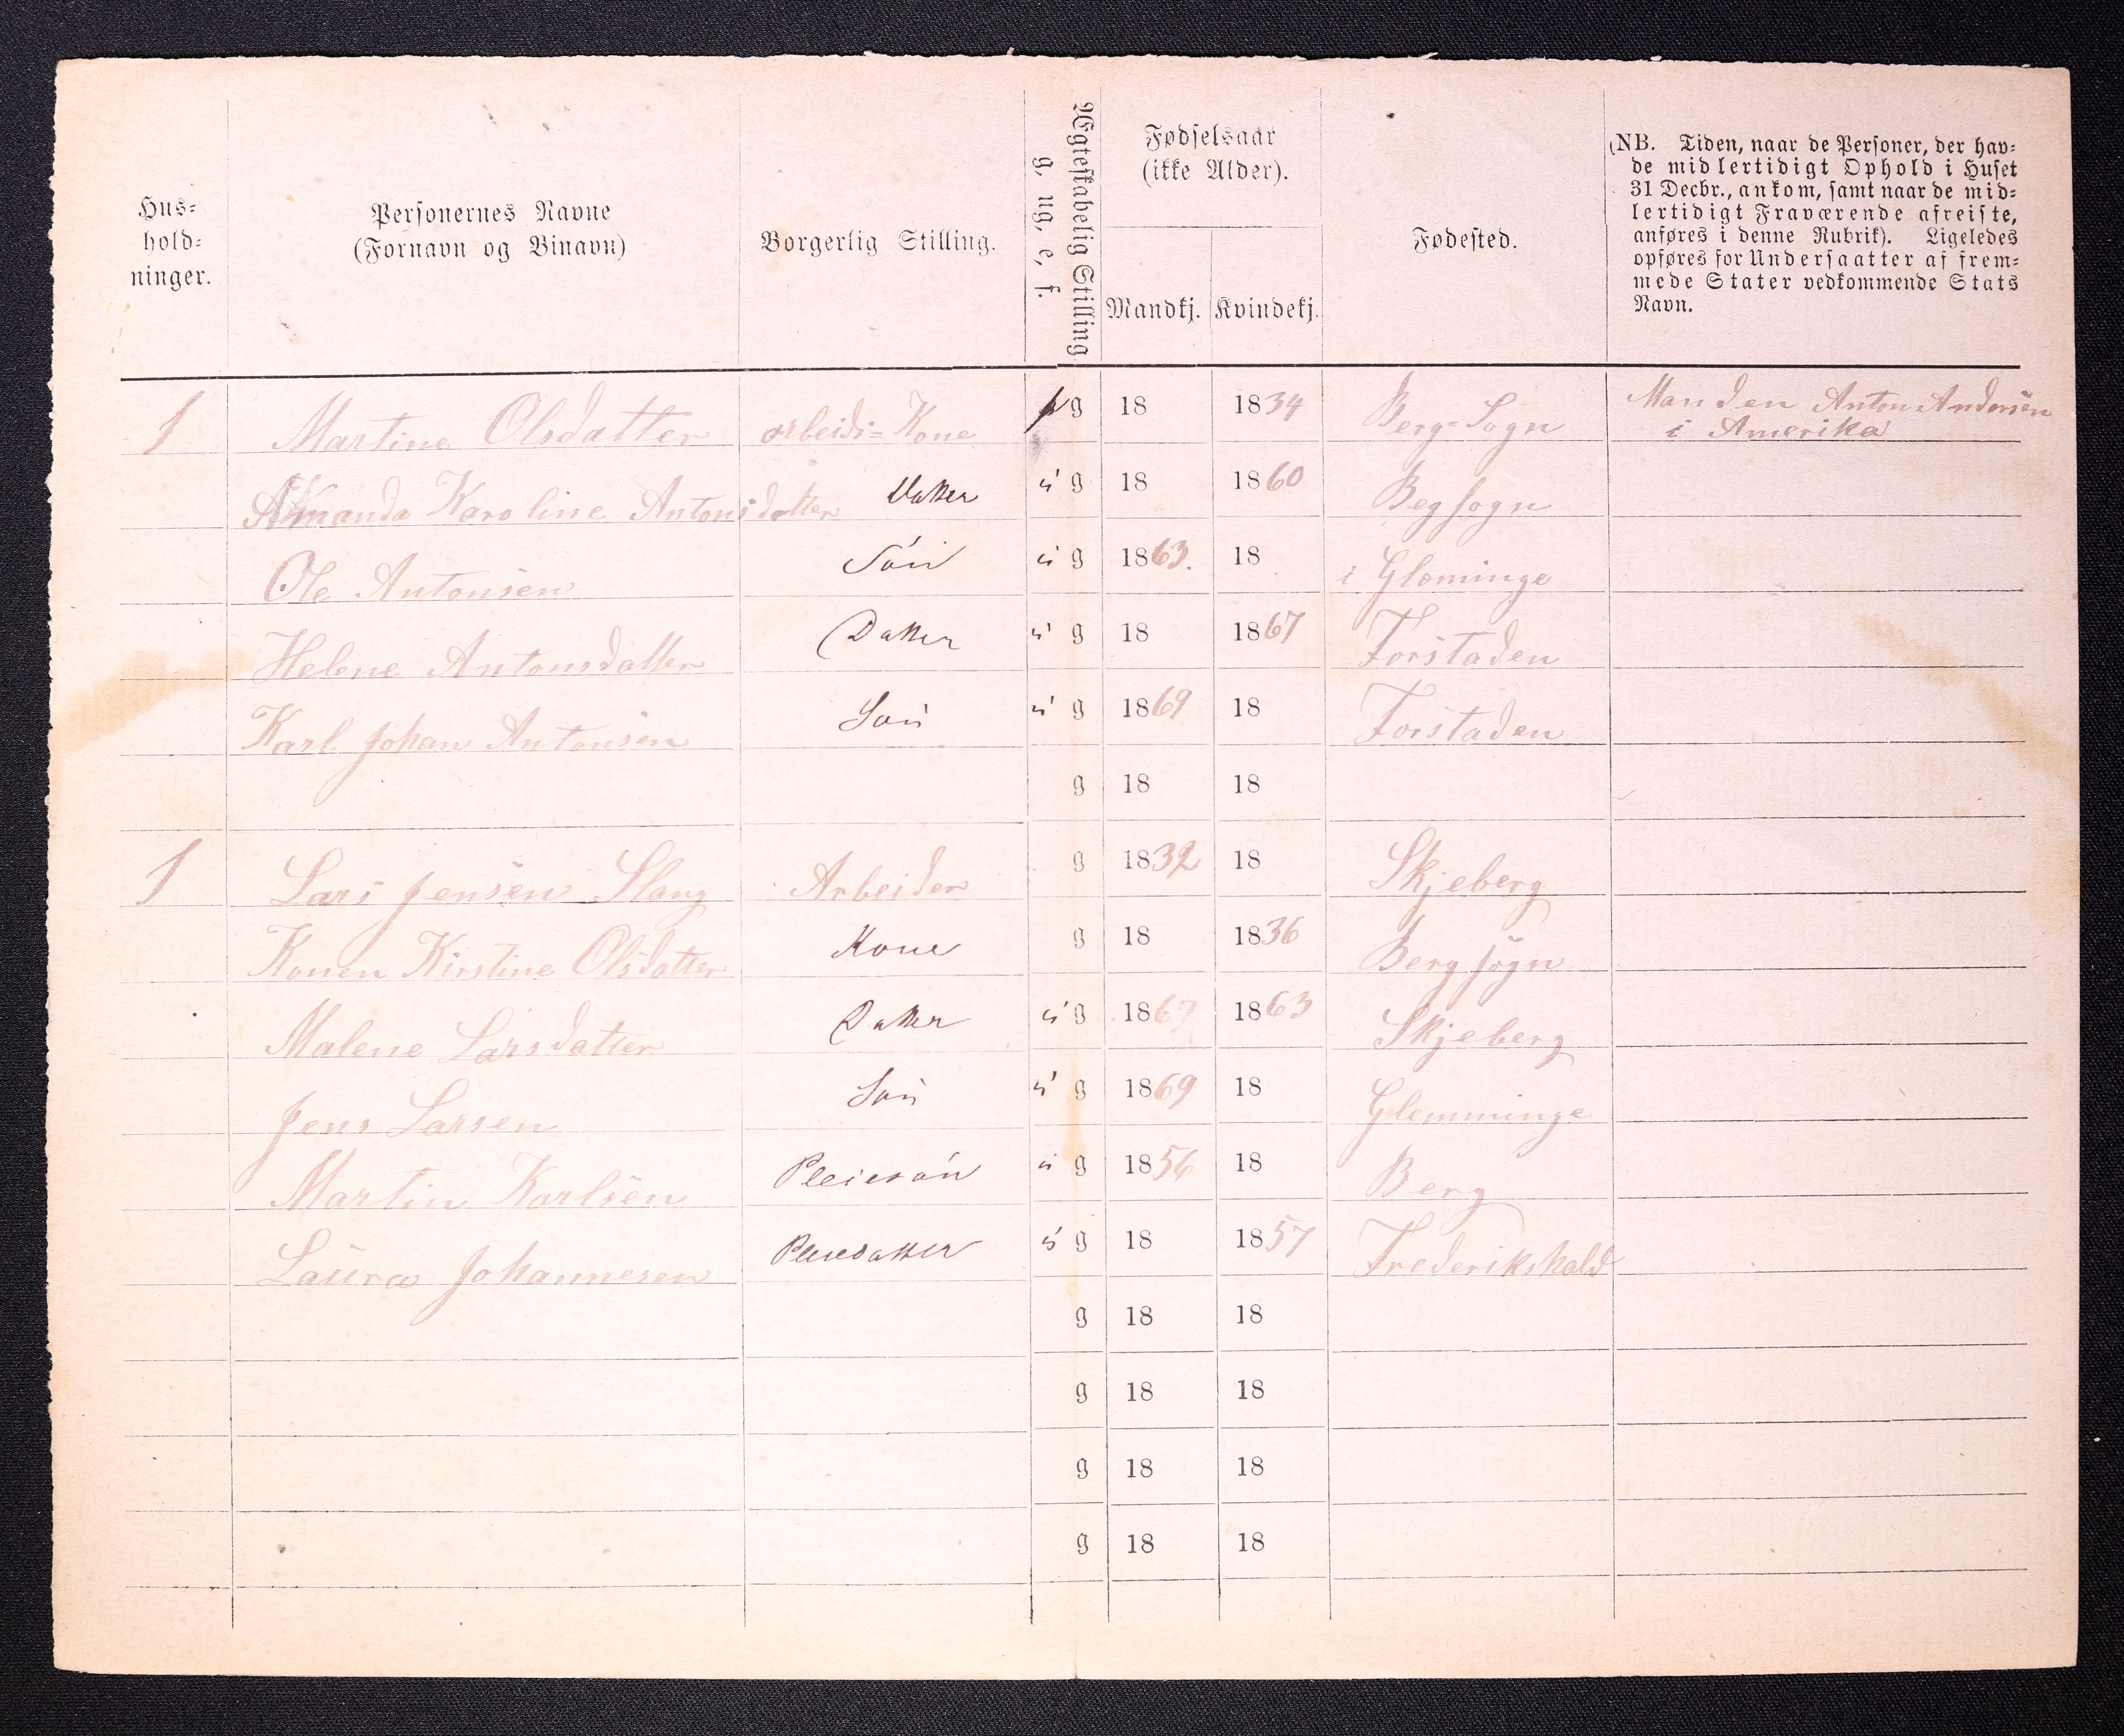 Hus-
hold-
ninger.
Personernes Navne
(Fornavn og Binavn)
Borgerlig Stilling.
Ægteskabelig Stilling
g, ug, e, f.
Fødselsaar
(ikke Alder).
Mandkj. Kvindekj.
Fødested.
(NB. Tiden, naar de Personer, der hav-
de midlertidigt Ophold i Huset
31 Decbr., ankom, samt naar de mid-
lertidigt Fraværende afreiste,
anføres i denne Rubrik). Ligeledes
opføres for Undersaatter af frem-
mede Stater vedkommende Stats
Navn.
1 Martine Olsdatter arbeids=Kone g 18 1834 Berg=Sogn Manden Anton Andersen
i Amerika
Amanda Karoline Antonsdatter Datter u g 18 1860 Beg sogn
Ole Antonsen Sön u g 1863. 18 i Gleminge
Helene Antonsdatter Datter u g 18 1867 Forstaden
Karl Johan Antonsen Sön u g 1869 18 Forstaden
g 18 18
1 Lars Jensen Slang Arbeider g 1832 18 Skjeberg
Konen Kirstine Olsdatter Kone g 18 1836 Berg sogn
Malene Larsdatter Datter u g 1867 1863 Skjeberg
Jens Larsen Sön u g 1869 18 Glemminge
Martin Karlsen Pleiesön u g 1856 18 Berg
Laura Johannesen Pleiedatter u g 18 1857 Frederikshald
g 18 18
g 18 18
g 18 18
g 18 18